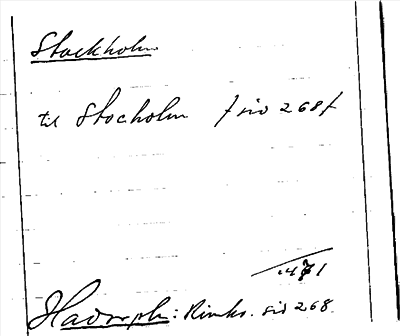 Stockholm
til Stocholm / sid 268 /
1471
Hadorph: Rimkr. sid 268.